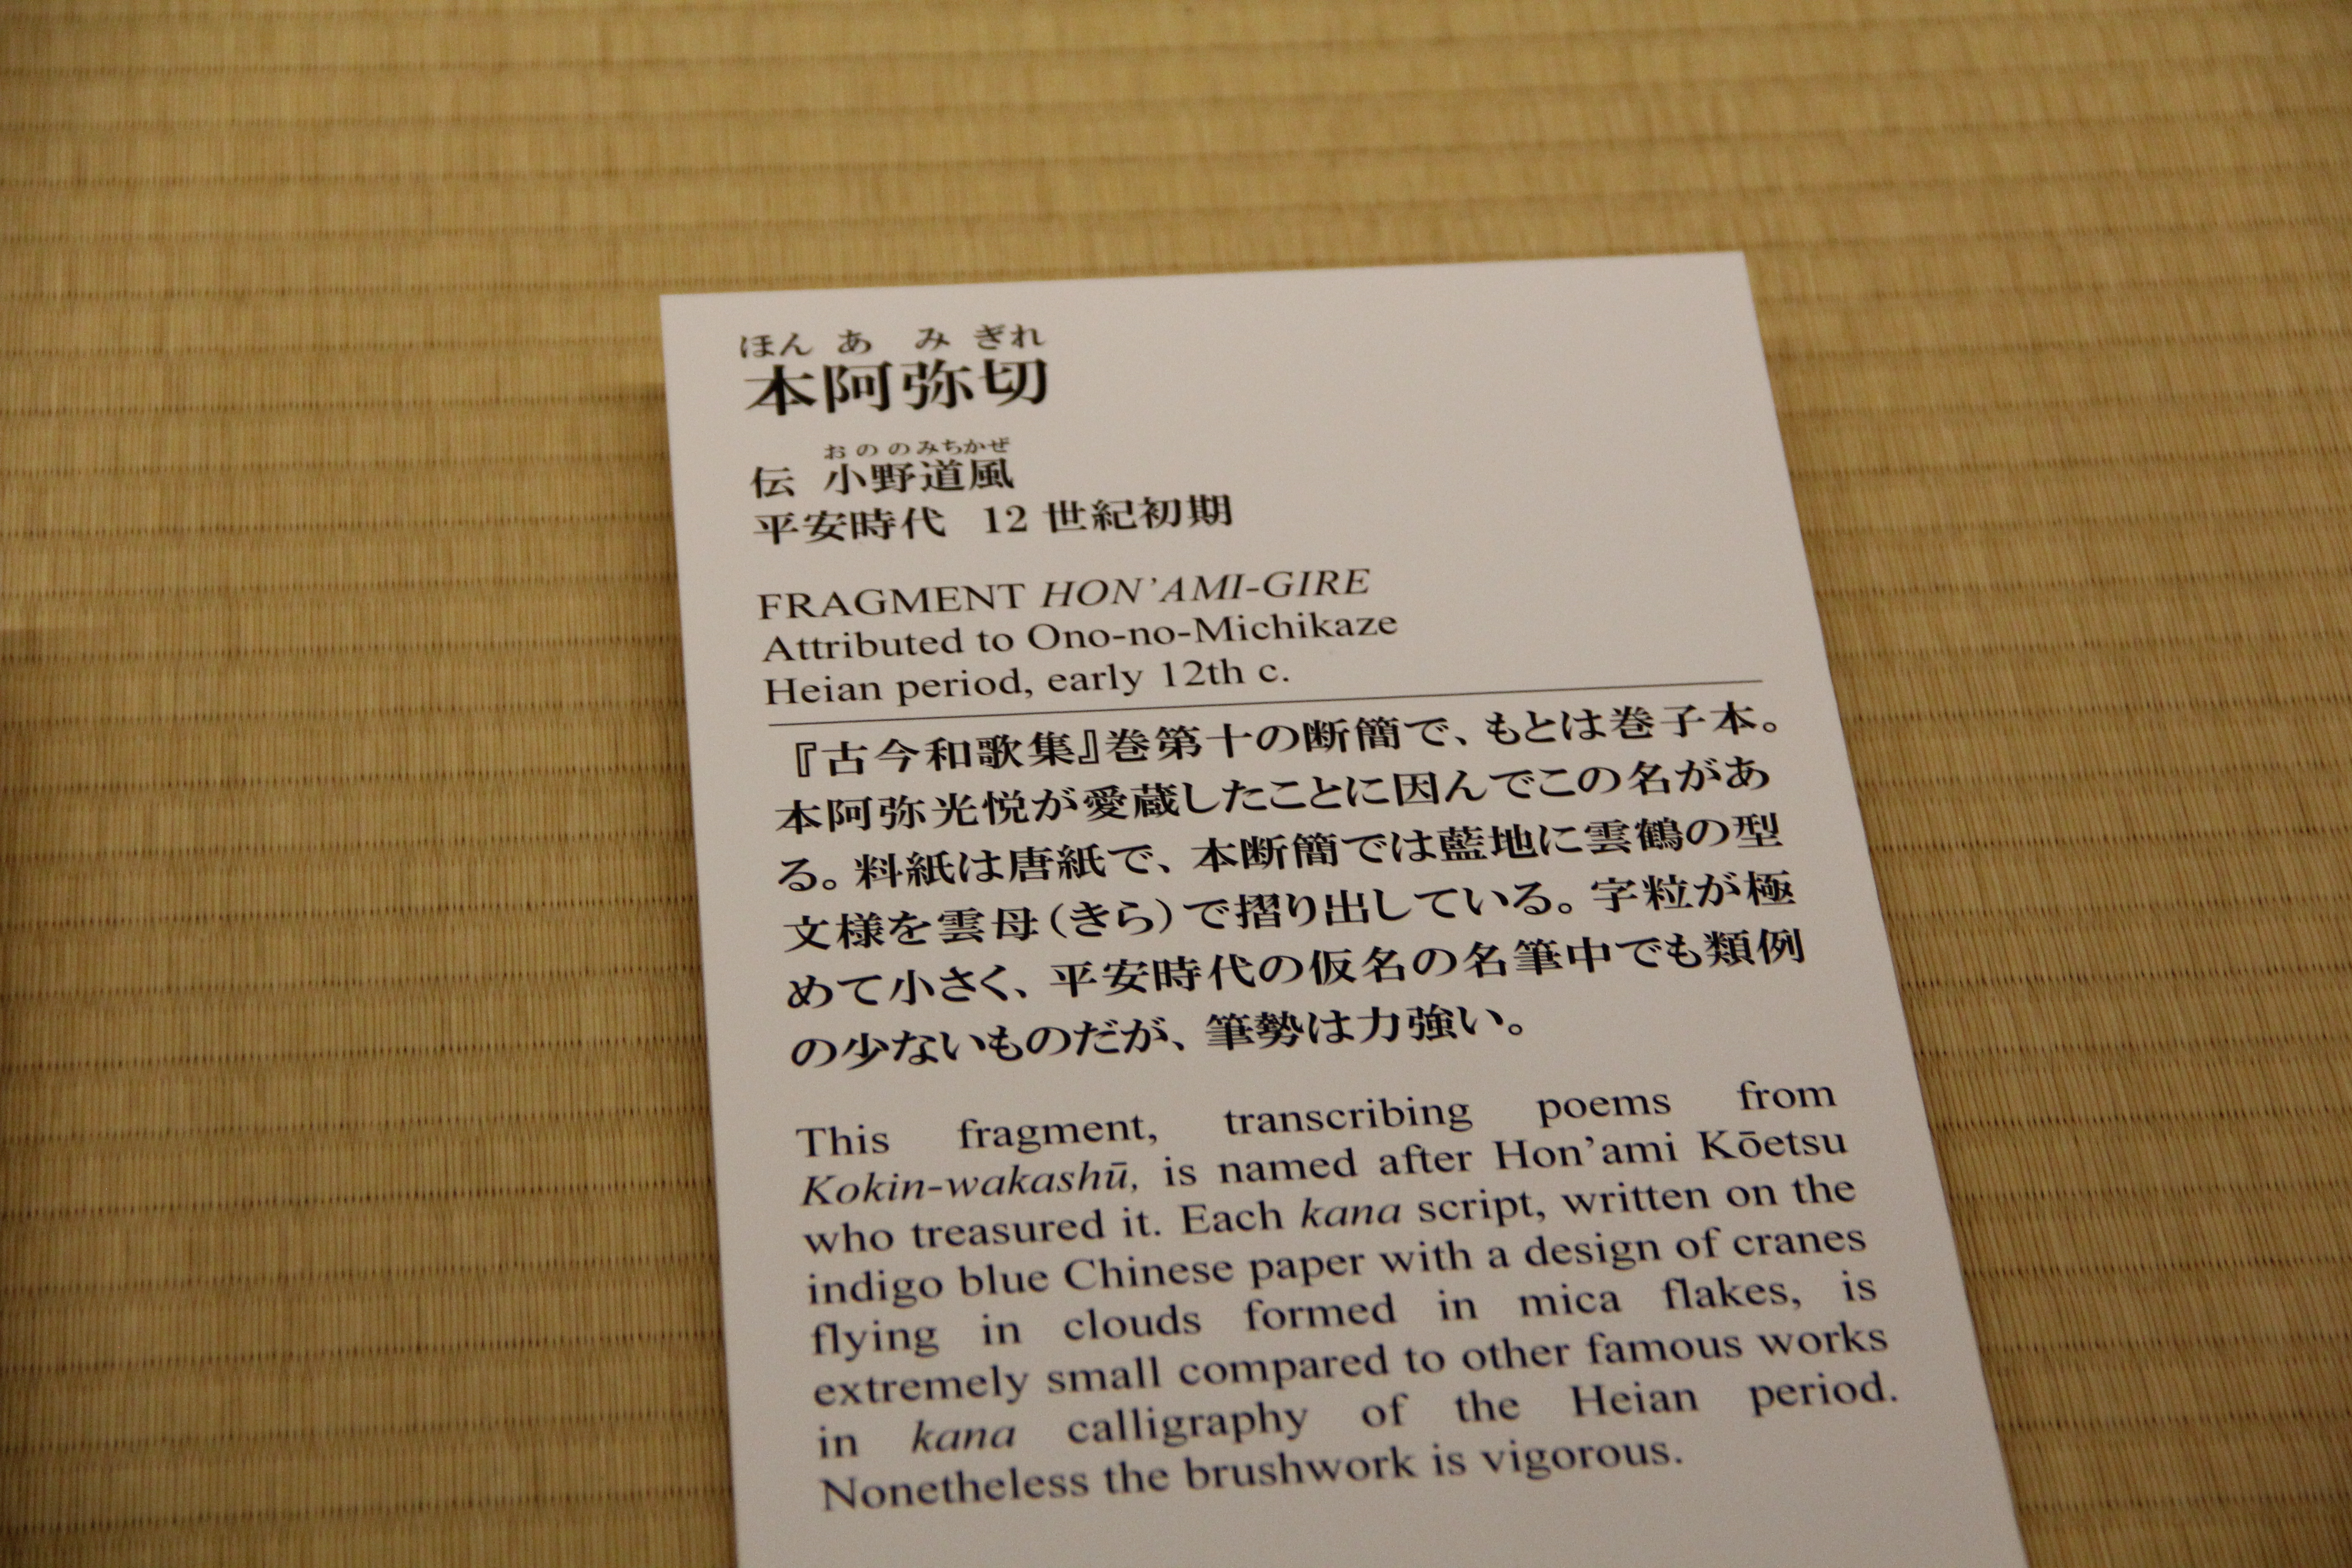 ほんあみぎれ
本阿弥切
おののみちかぜ
伝 小野道風
平安時代 12世紀初期
FRAGMENT HON'AMI-GIRE
Attributed to Ono-no-Michikaze
Heian period, early 12th c.
『古今和歌集』巻第十の断簡で、もとは巻子本。
本阿弥光悦が愛蔵したことに因んでこの名があ
る。料紙は唐紙で、本断簡では藍地に雲鶴の型
文様を雲母(きら)で摺り出している。字粒が極
めて小さく、平安時代の仮名の名筆中でも類例
の少ないものだが、筆勢は力強い。
This fragment, transcribing poems from
Kokin-wakashū, is named after Hon'ami Kōetsu
who treasured it. Each kana script, written on the
indigo blue Chinese paper with a design of cranes
flying in clouds formed in mica flakes, is
extremely small compared to other famous works
in kana calligraphy of the Heian period.
Nonetheless the brushwork is vigorous.